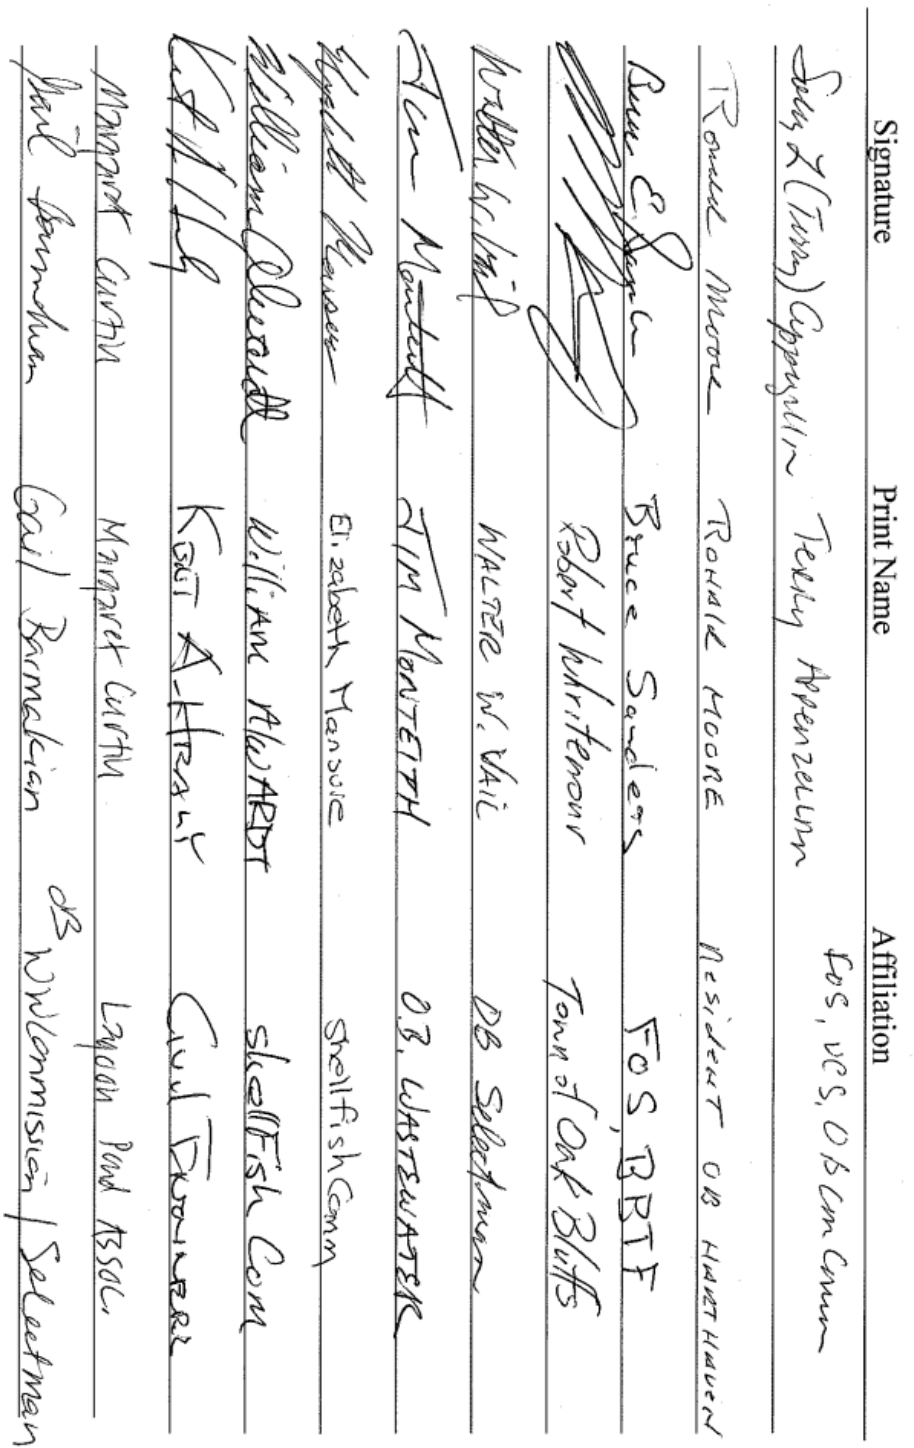 Signature Print Name Affiliation
(Terry) Terry Appenzeller FOS, VCS, OB Com Comm
Ronald Moore RONALD MOORE Resident OB HARTHAVEN
Bruce E. Bruce Sanders FOS, BBTF
Robert Whritenour Town of Oak Bluffs
Walter W. Vail WALTER W. VAIL OB Selectman
Jim Monteith JIM MONTEITH O.B. WASTEWATER
Elizabeth Mansure Shellfish Comm
William Alwardt William AlwARDT shellFish Com
KENT A. HEALY CIVIL ENGINEER
Margaret Curtin Margaret Curtin Lagoon Pond Assoc.
Gail Barmakian Gail Barmakian OB WWCommission / Selectman